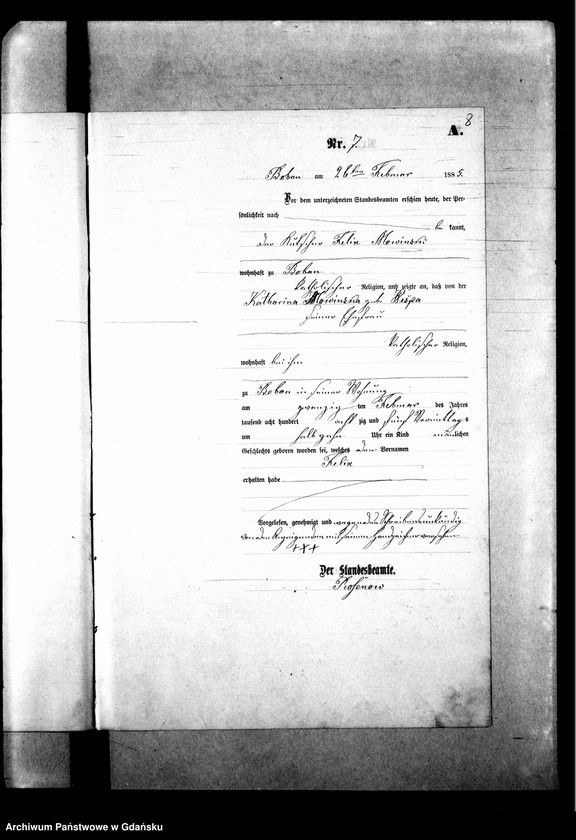 8
A.
Nr. 7.
Boban am 26ten Februar 1885.
Vor dem unterzeichneten Standesbeamten erschien heute, der Per-
sönlichkeit nach
be kannt,
der Kutscher Felix Mowinski
wohnhaft zu Boban
katholischer Religion, und zeigte an, daß von der
Katharina Mowinska geb.
seiner Ehefrau
katholischer Religion,
wohnhaft bei ihm
zu Boban in seiner Wohnung
am zwanzig ten Februar des Jahres
tausend acht hundert acht zig und fünf Vormittags
um halb zehn Uhr ein Kind männlichen
Geschlechts geboren worden sei, welches den Vornamen
Felix
erhalten habe
Vorgelesen, genehmigt und wegen des Schreibensunkundig
von dem Anzeigenden mit seinem Handzeichen versehen
+++
Der Standesbeamte.
Rosenow
Archiwum Państwowe w Gdańsku